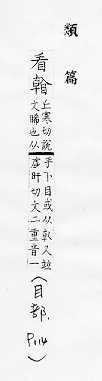 類篇
看
丘寒切說
文睎也从
手下目或从倝又竝
虛旰切文二重音一
(目部, P.114)